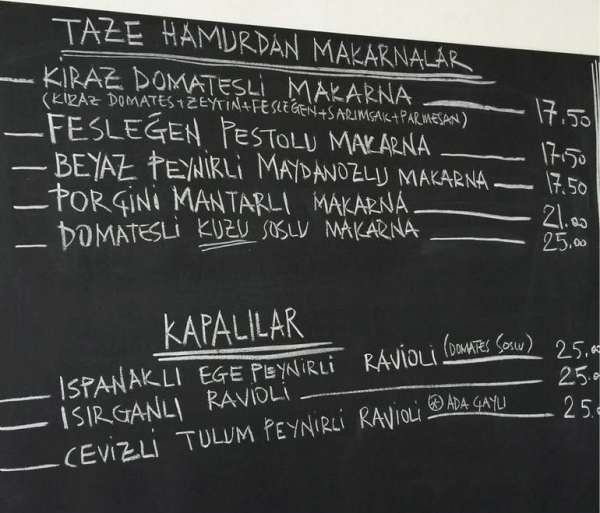 TAZE HAMURDAN MAKARNALAR
KİRAZ DOMATESLİ MAKARNA 17.50
(KİRAZ DOMATES+ZEYTİN+FESLEĞEN+SARIMSAK+PARMESAN)
FESLEĞEN PESTOLU MAKARNA 17.50
BEYAZ PEYNİRLİ MAYDANOZLU MAKARNA 17.50
PORÇİNİ MANTARLI MAKARNA 21.00
DOMATESLİ KUZU SOSLU MAKARNA 25.00
KAPALILAR
ISPANAKLI EGE PEYNİRLİ RAVİOLİ (DOMATES SOSLU) 25.00
ISIRGANLI RAVİOLİ 25.
CEVİZLİ TULUM PEYNİRLİ RAVİOLİ * ADA ÇAYLI 25.